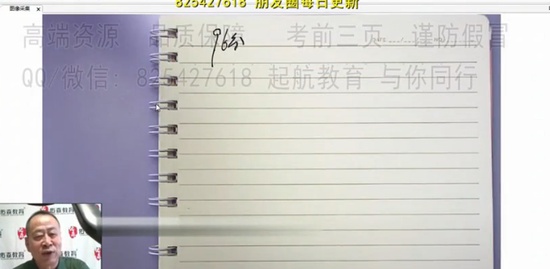 825427618 朋友圈每日更新
图像采集
高端资源 品质保障 考前三页 谨防假冒
QQ/微信: 825427618 起航教育 与你同行
96分